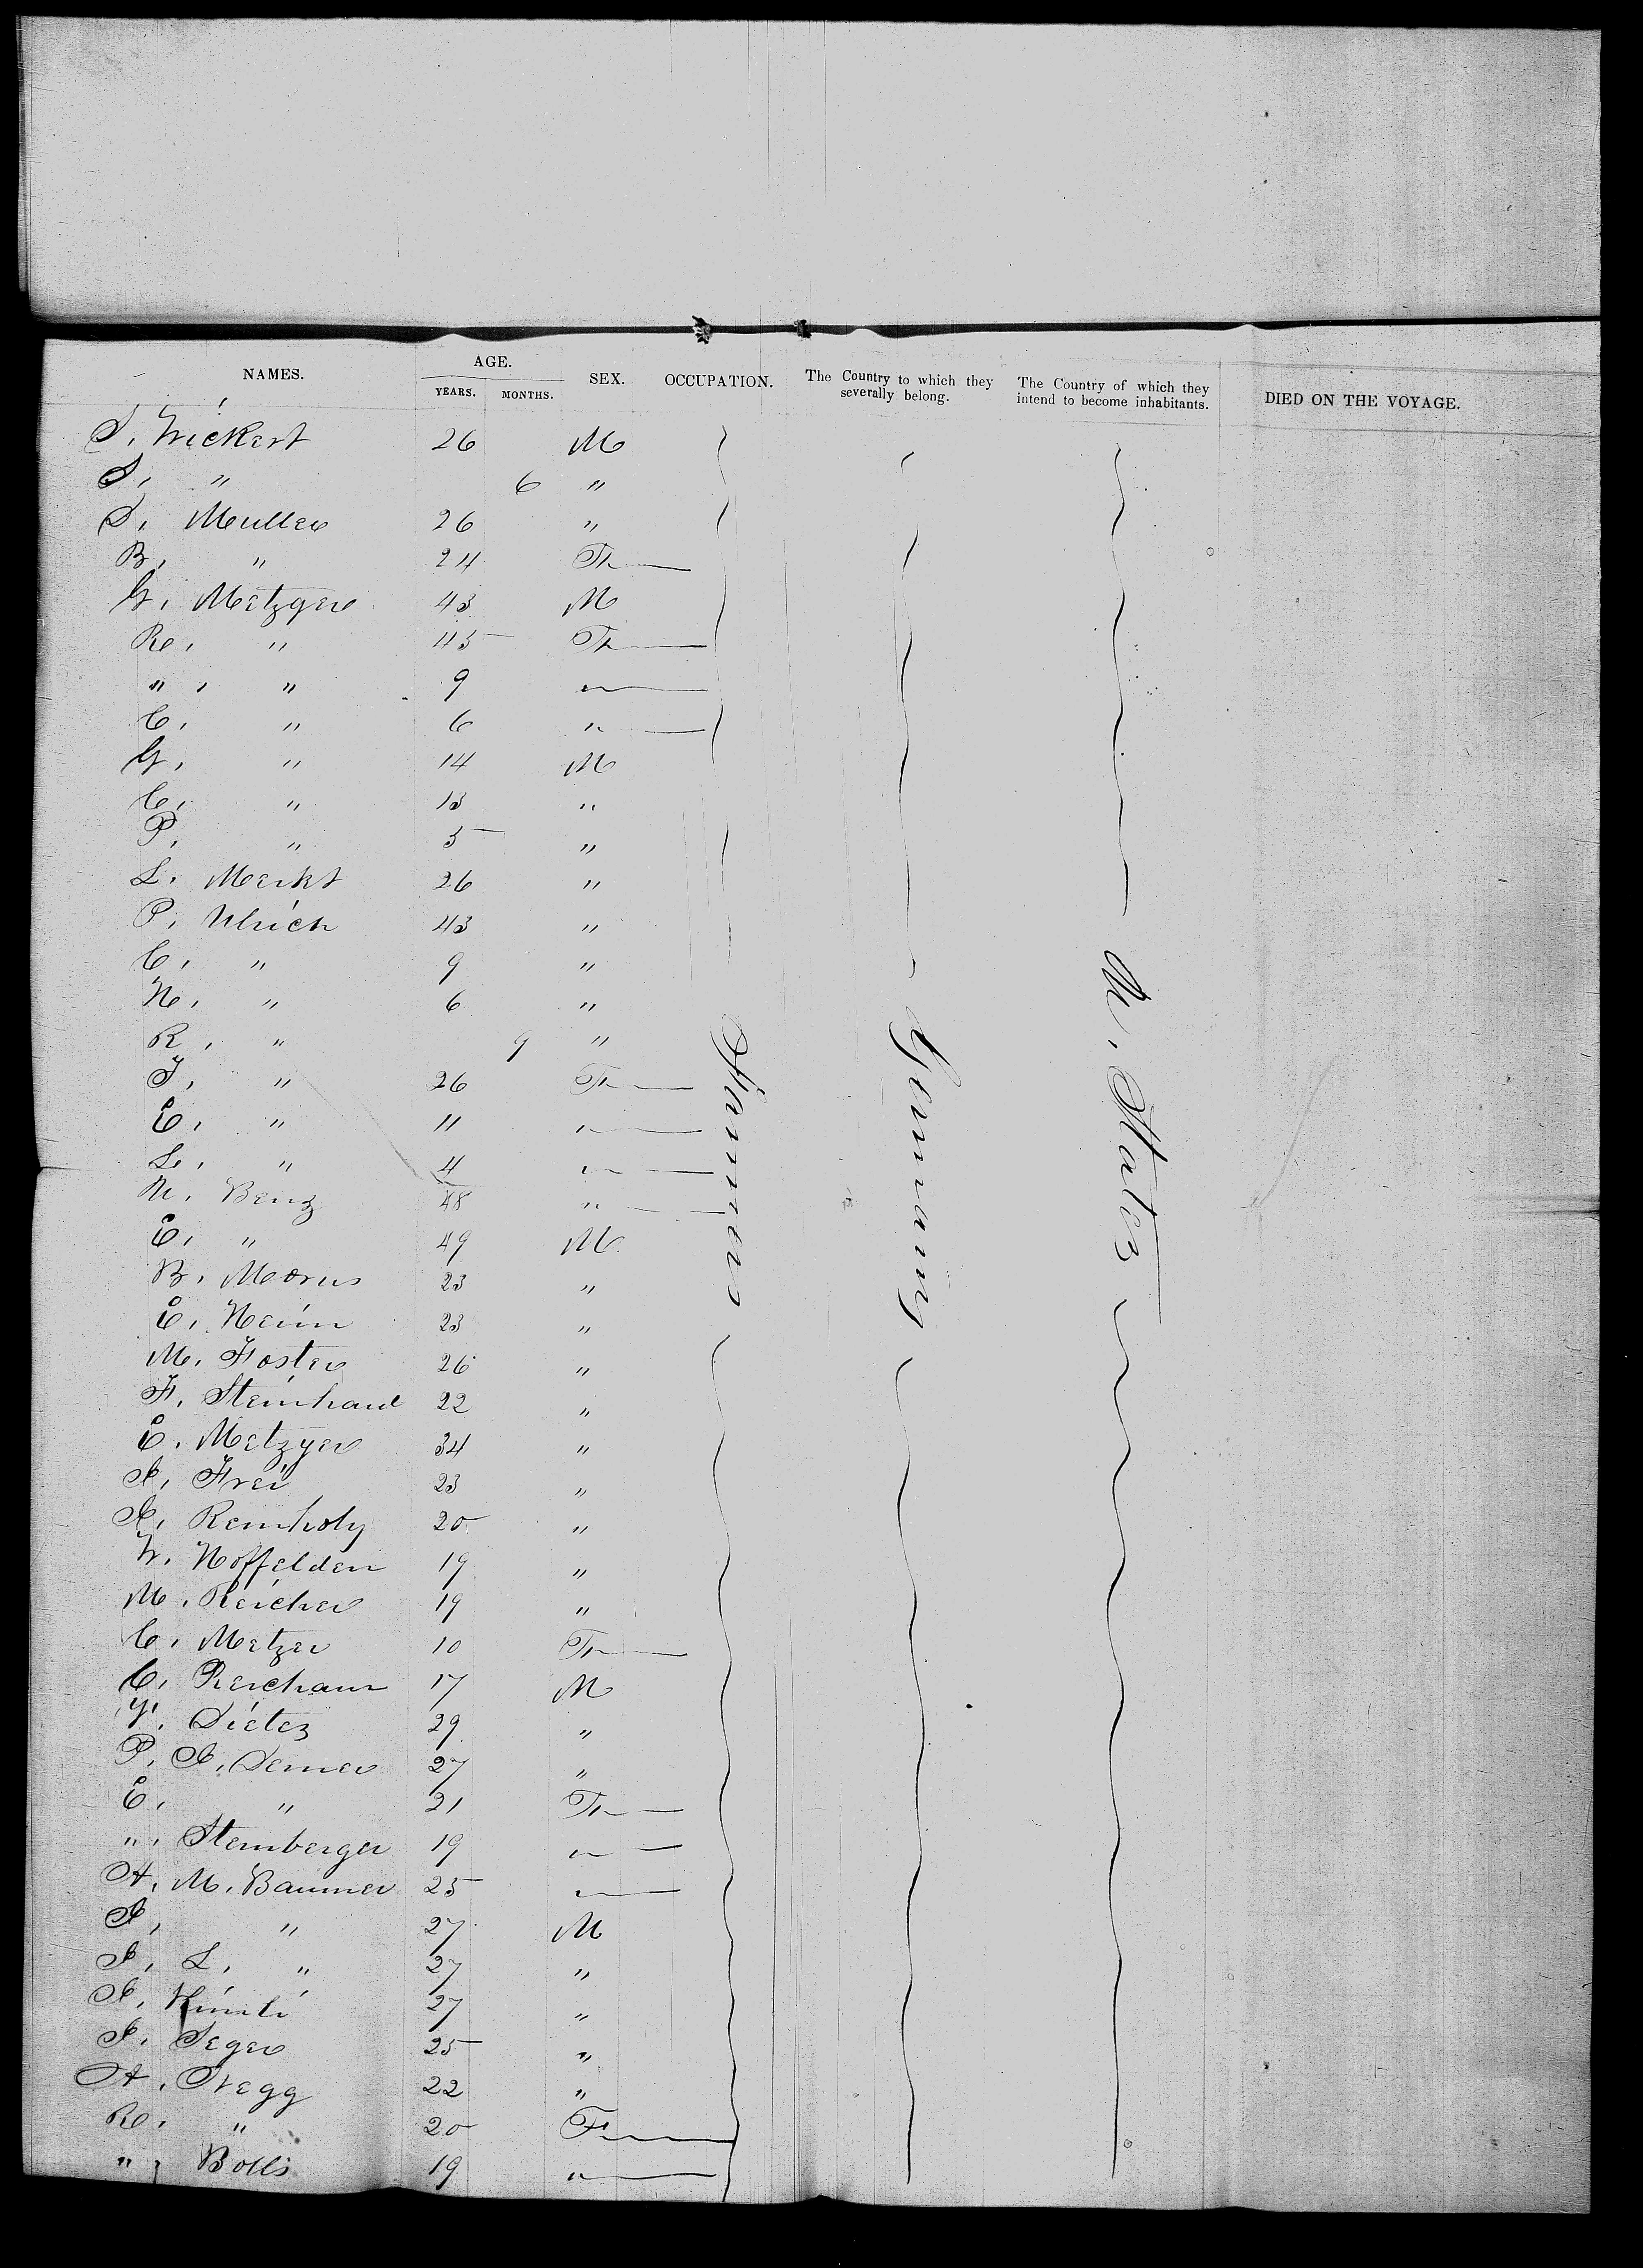 NAMES. AGE. SEX. OCCUPATION. The Country to which they severally belong. The Country of which they intend to become inhabitants. DIED ON THE VOYAGE.
YEARS. MONTHS.
S, Wickert 26 M
S, " 6 "
S, Muller 26 "
B, " 24 F
G, Metzger 43 M
R, " 45 F
" , " 9 "
C, " 6 "
G, " 14 M
C, " 13 "
P, " 5 "
L. Merkt 26 "
P, Ulrich 43 "
C, " 9 "
H, " 6 "
R, " 9 "
J, " 26 F
E, " 11 "
L, " 4 "
Benz 48 "
E, " 49 M
B, Morus 23 "
E, Heim 23 "
M. Foster 26 "
F, Steinhard 22 "
E. Metzger 34 "
J, Frei 23 "
J, Reinholz 20 "
W. Hoffelden 19 "
M. Reicher 19 "
C, Metzer 10 F
C, Reichaur 17 M
Y, Dietz 29 "
P, J, Denner 27 "
E, " 21 F
", Steinberger 19 "
A, M. Baumer 25 "
J, " 27 M
J, L, " 27 "
J, 27 "
J. Seger 25 "
A, Negg 22 "
R, " 20 F
" , Bolls 19 "
Farmer
Germany
U. States